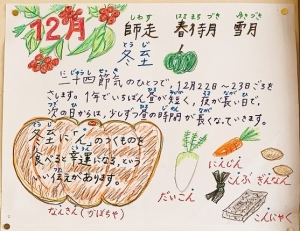 12月 師走 春待月 雪月
しわす はるまちづき ゆきづき
とうじ
冬至
にじゅうしせっき
二十四節気のひとつで、12月22日～23日ごろを
さします。1年でいちばん昼が短く、夜が長い日で、
次の日からは、少しずつ昼の時間が長くなっていきます。
とうじ
冬至に「ん」のつくものを
食べると幸運になる、という
いい伝えがあります。
なんきん(かぼちゃ)
だいこん
にんじん
こんぶ
ぎんなん
こんにゃく